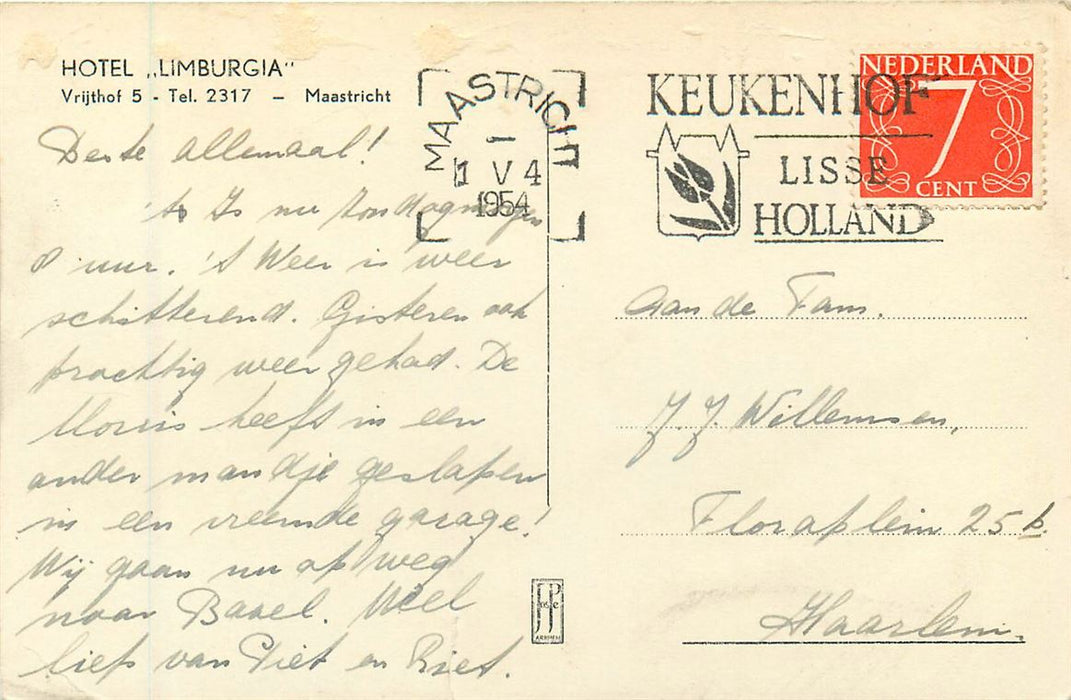 HOTEL „LIMBURGIA"
Vrijthof 5 - Tel. 2317 – Maastricht
Beste allemaal!
't Is nu Zondagmorgen
8 uur. 't Weer is weer
schitterend. Gisteren ook
prachtig weer gehad. De
Morris heeft in een
ander mandje geslapen
in een vreemde garage!
Wij gaan nu op weg
naar Bazel. Veel
liefs van Piet en Riet.
MAASTRICHT
1 V 4
1954
KEUKENHOF
LISSE
HOLLAND
NEDERLAND
7
CENT
Aan de Fam.
J. J. Willemsen,
Floraplein 25 b.
Haarlem.
JosPe
ARNHEM